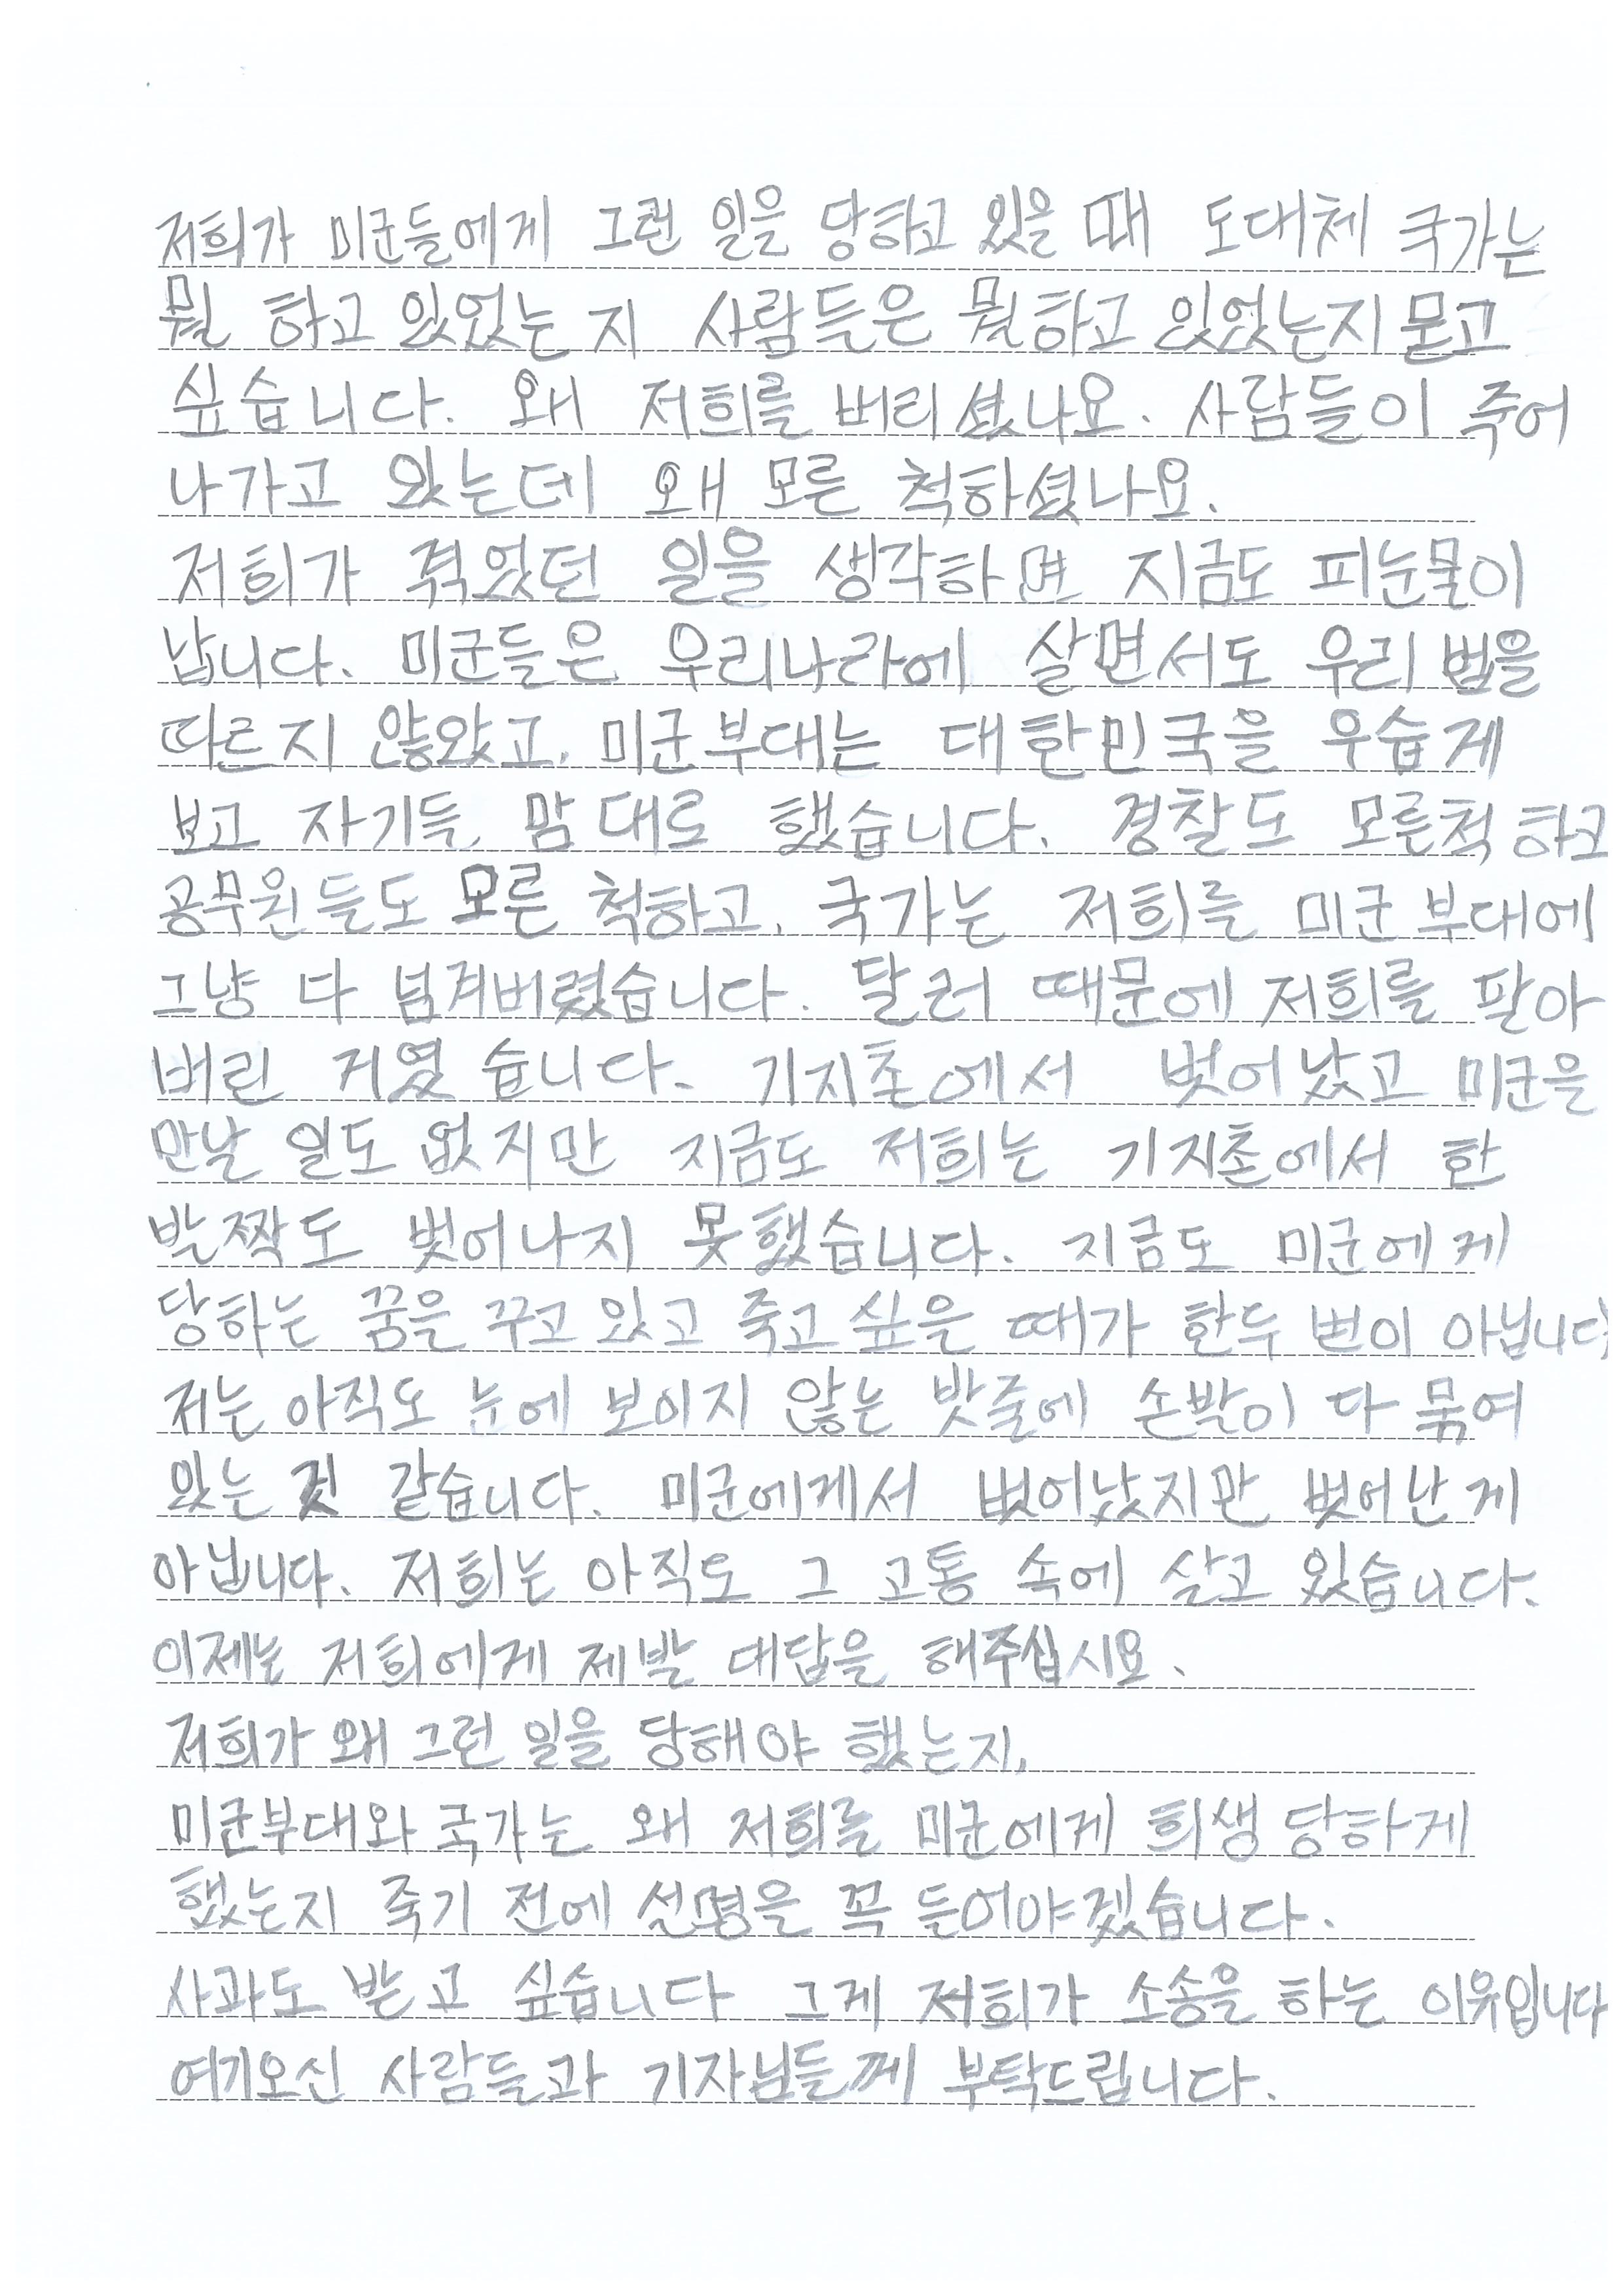 저희가 미군들에게 그런 일을 당하고 있을 때 도대체 국가는
뭘 하고 있었는 지 사람들은 뭘하고 있었는지 묻고
싶습니다. 왜 저희를 버리셨나요. 사람들이 죽어
나가고 있는데 왜 모른 척하셨나요.
저희가 겪었던 일을 생각하면 지금도 피눈물이
납니다. 미군들은 우리나라에 살면서도 우리 법을
따르지 않았고, 미군부대는 대한민국을 우습게
보고 자기들 맘 대로 했습니다. 경찰도 모른척 하고
공무원들도 모른 척하고, 국가는 저희를 미군 부대에
그냥 다 넘겨버렸습니다. 달러 때문에 저희를 팔아
버린 거였습니다. 기지촌에서 벗어났고 미군을
만날 일도 없지만 지금도 저희는 기지촌에서 한
발짝도 벗어나지 못했습니다. 지금도 미군에게
당하는 꿈을 꾸고 있고 죽고 싶은 때가 한두 번이 아닙니다
저는 아직도 눈에 보이지 않는 밧줄에 손발이 다 묶여
있는 것 같습니다. 미군에게서 벗어났지만 벗어난 게
아닙니다. 저희는 아직도 그 고통 속에 살고 있습니다.
이제는 저희에게 제발 대답을 해주십시요.
저희가 왜 그런 일을 당해야 했는지,
미군부대와 국가는 왜 저희를 미군에게 희생 당하게
했는지 죽기 전에 설명을 꼭 들어야겠습니다.
사과도 받고 싶습니다 그게 저희가 소송을 하는 이유입니다
여기오신 사람들과 기자님들께 부탁드립니다.